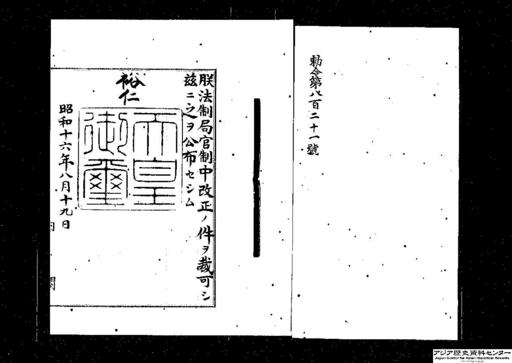 勅令第八百二十一號
朕法制局官制中改正ノ件ヲ裁可シ
茲ニ之ヲ公布セシム
裕仁
天皇
御璽
昭和十六年八月十九日
内閣
アジア歴史資料センター
Japan Center for Asian Historical Records